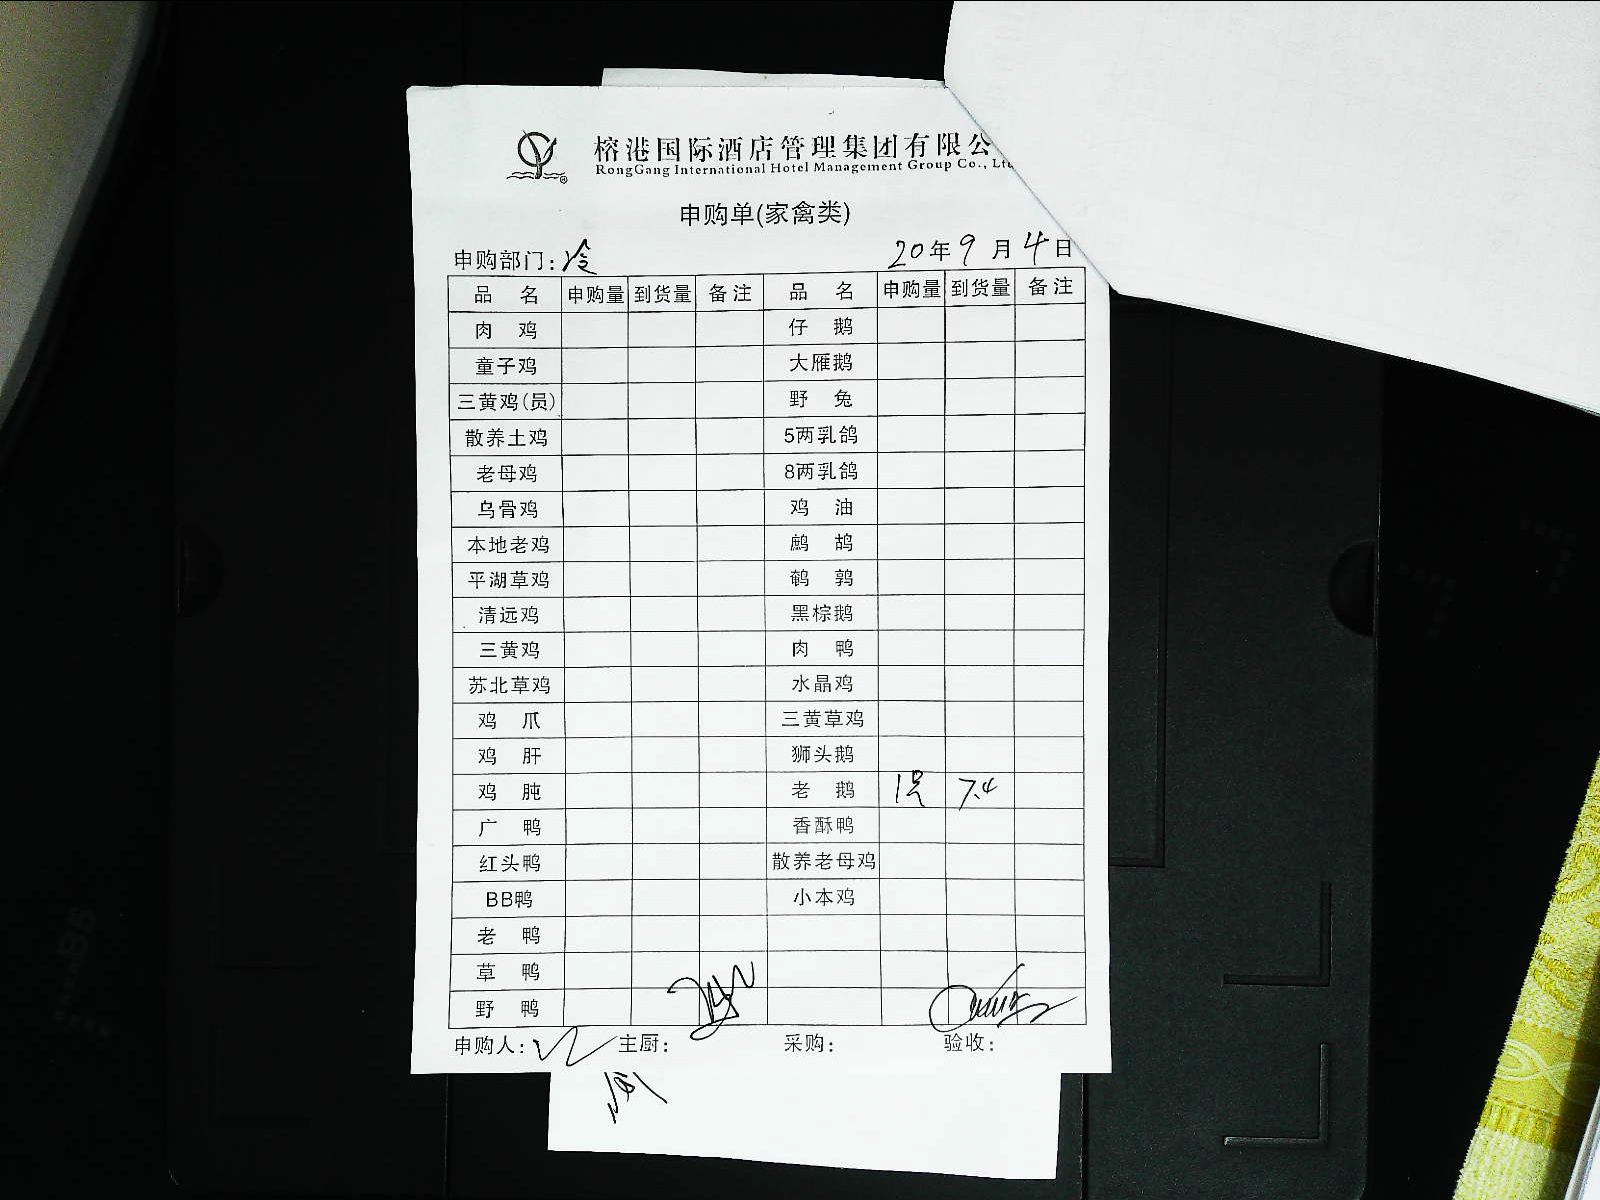 榕港国际酒店管理集团有限公
RongGang International Hotel Management Group Co., Lt
申购单(家禽类)
申购部门: 冷 20年9月4日
品名 申购量 到货量 备注 品名 申购量 到货量 备注
肉鸡 仔鹅
童子鸡 大雁鹅
三黄鸡(员) 野兔
散养土鸡 5两乳鸽
老母鸡 8两乳鸽
乌骨鸡 鸡油
本地老鸡 鹧鸪
平湖草鸡 鹌鹑
清远鸡 黑棕鹅
三黄鸡 肉鸭
苏北草鸡 水晶鸡
鸡爪 三黄草鸡
鸡肝 狮头鹅
鸡肫 老鹅 1只 7.4
广鸭 香酥鸭
红头鸭 散养老母鸡
BB鸭 小本鸡
老鸭
草鸭
野鸭
申购人: 主厨: 采购: 验收: